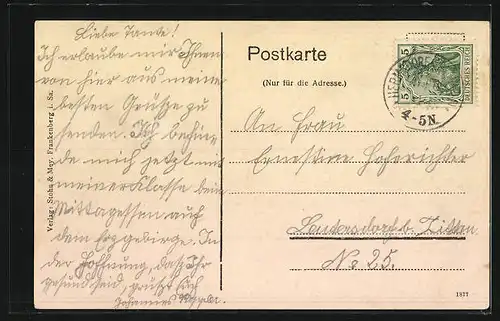 Liebe Tante!
Ich erlaube mir Ihnen
von hier aus meine
besten Grüsse zu
senden. Ich befin-
de mich jetzt mit
meiner Klasse beim
Mittagessen auf
dem Erzgebirge. In
der Hoffnung, dass Ihr
gesund seid, grüsst Euch
Johannes
Verlag: Stohn & Mey, Frankenberg i. Sa.
Postkarte
(Nur für die Adresse.)
5
5
DEUTSCHES REICH
4-5N.
An Frau
Ernestine
b. Zittau
No 25.
1877